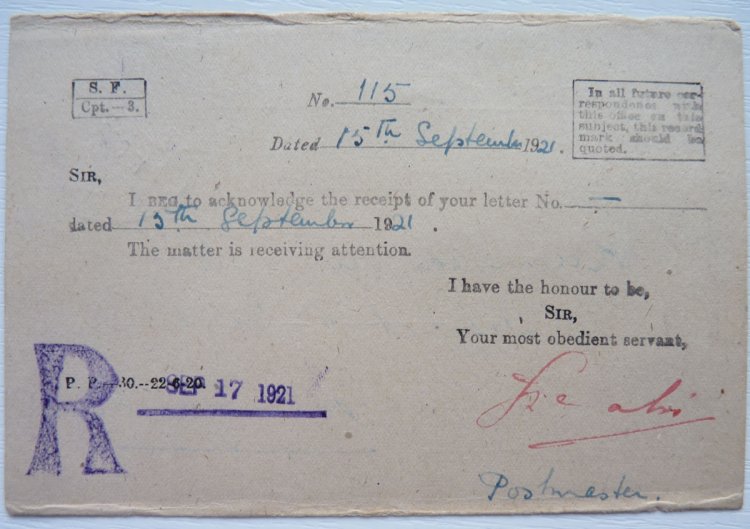 S. F.
Cpt.—3.
No. 115
In all future cor-
respondence with
this office on this
subject, this record
mark should be
quoted.
Dated 15th September 1921.
SIR,
I BEG to acknowledge the receipt of your letter No. —
dated 15th September 1921.
The matter is receiving attention.
I have the honour to be,
SIR,
Your most obedient servant,
R
P. P.—30.--22-6-20.
SEP 17 1921
Postmaster.